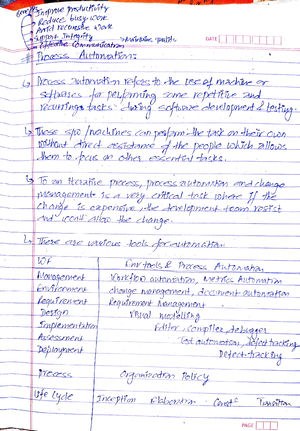 Benefits
Improve productivity
Reduce busy work
Avoid reentrable work
Support Integrity
Effective Communication
→ Maintains quality
DATE
Process Automation:
↳ Process automation refers to the use of machine or
softwares for performing some repetitive and
recurring tasks during software development & testing.
↳ Those s/w/machines can perform the task on their own
without direct assistance of the people which allows
them to focus on other essential tasks.
↳ In an iterative process, process automation and change
management is a very critical task where if the
change is expensive the development team resist
and won't allow the change.
↳ There are various tools for automation.
WF Env tools & Process Automation
Management Workflow automation, Metrics Automation
Environment change management, document automation
Requirement Requirement Management
Design Visual modelling
Implementation Editor, compiler, debugger
Assessment Test automation, defect tracking
Deployment Defect-tracking
Process Organization Policy
Life Cycle Inception Elaboration Const Transition
PAGE